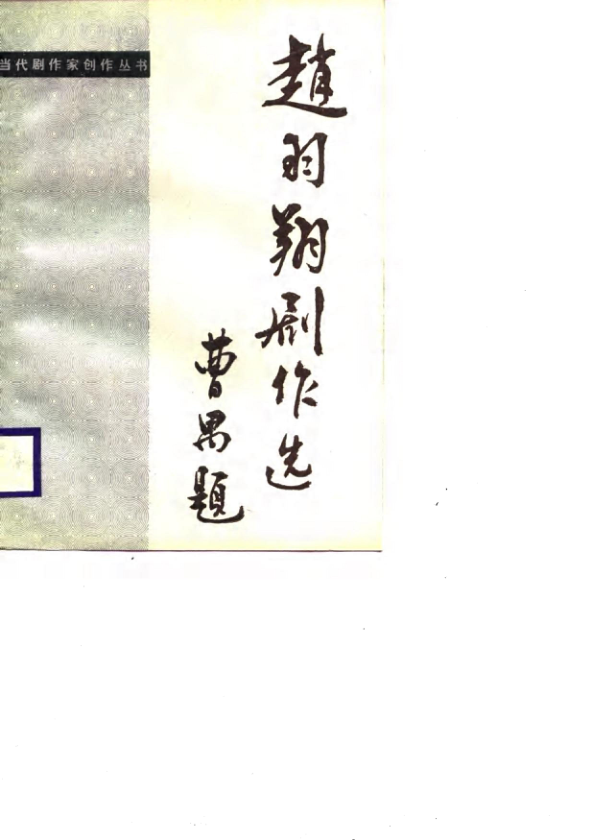 当代剧作家创作丛书
趙羽翔剧作选
曹禺题